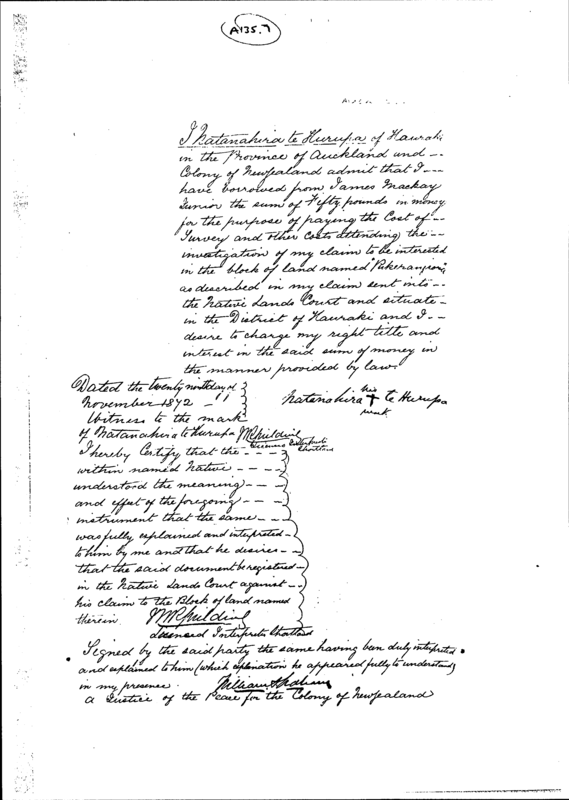 A135.7
I Natanahira te Hurupa of Hauraki
in the Province of Auckland and --
Colony of New Zealand admit that I ---
have borrowed from James Mackay
Junior the sum of Fifty pounds in money
for the purpose of paying the Cost of --
Survey and other Costs attending the --
investigation of my claim to be interested
in the block of land named
as described in my claim sent into --
the Native Lands Court and situate -
in the District of Hauraki and I --
desire to charge my right title and
interest in the said sum of money in
the manner provided by law
Dated the twenty day of
November 1872
Natanahira his + te Hurupa
mark
Witness to the mark
of Natanahira te Hurupa
Licensed Interpreter
Shortland
I hereby Certify that the - - -
within named Native - - - -
understood the meaning - - -
and effect of the foregoing - - -
instrument that the same - - -
was fully explained and interpreted -
to him by me and that he desires - -
that the said document be registered -
in the Native Lands Court against - -
his claim to the Block of land named
therein
Licensed Interpreter Shortland
Signed by the said party the same having been duly interpreted
and explained to him (which explanation he appeared fully to understand)
in my presence. William
a Justice of the Peace for the Colony of New Zealand